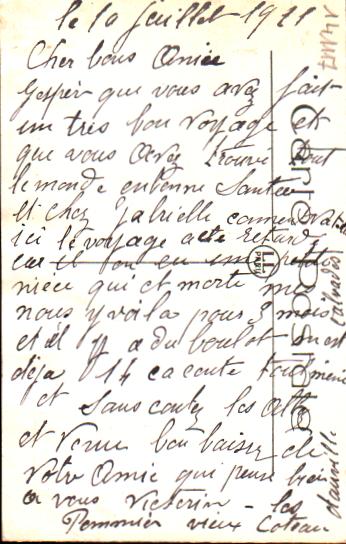 le 10 juillet 1911
Cher bons Amiee
Jesper que vous avez fait
un tres bon voyage et
que vous avez trouvé tout
le monde en bonne Santée
Et chez Gabrielle comen va
ici le voyage a ete retard
car il on eu une petite
niéce qui et morte
nous y voila pour 3 mois
et il y a du boulot on est
deja 14 ca conte tout meme
et Sans contez les
et Verne bon baiser de
votre Amie qui pense bien
a vous Victorin - les
Pommier vieux Coteau
Carte Postale
LL
PARIS
calvados